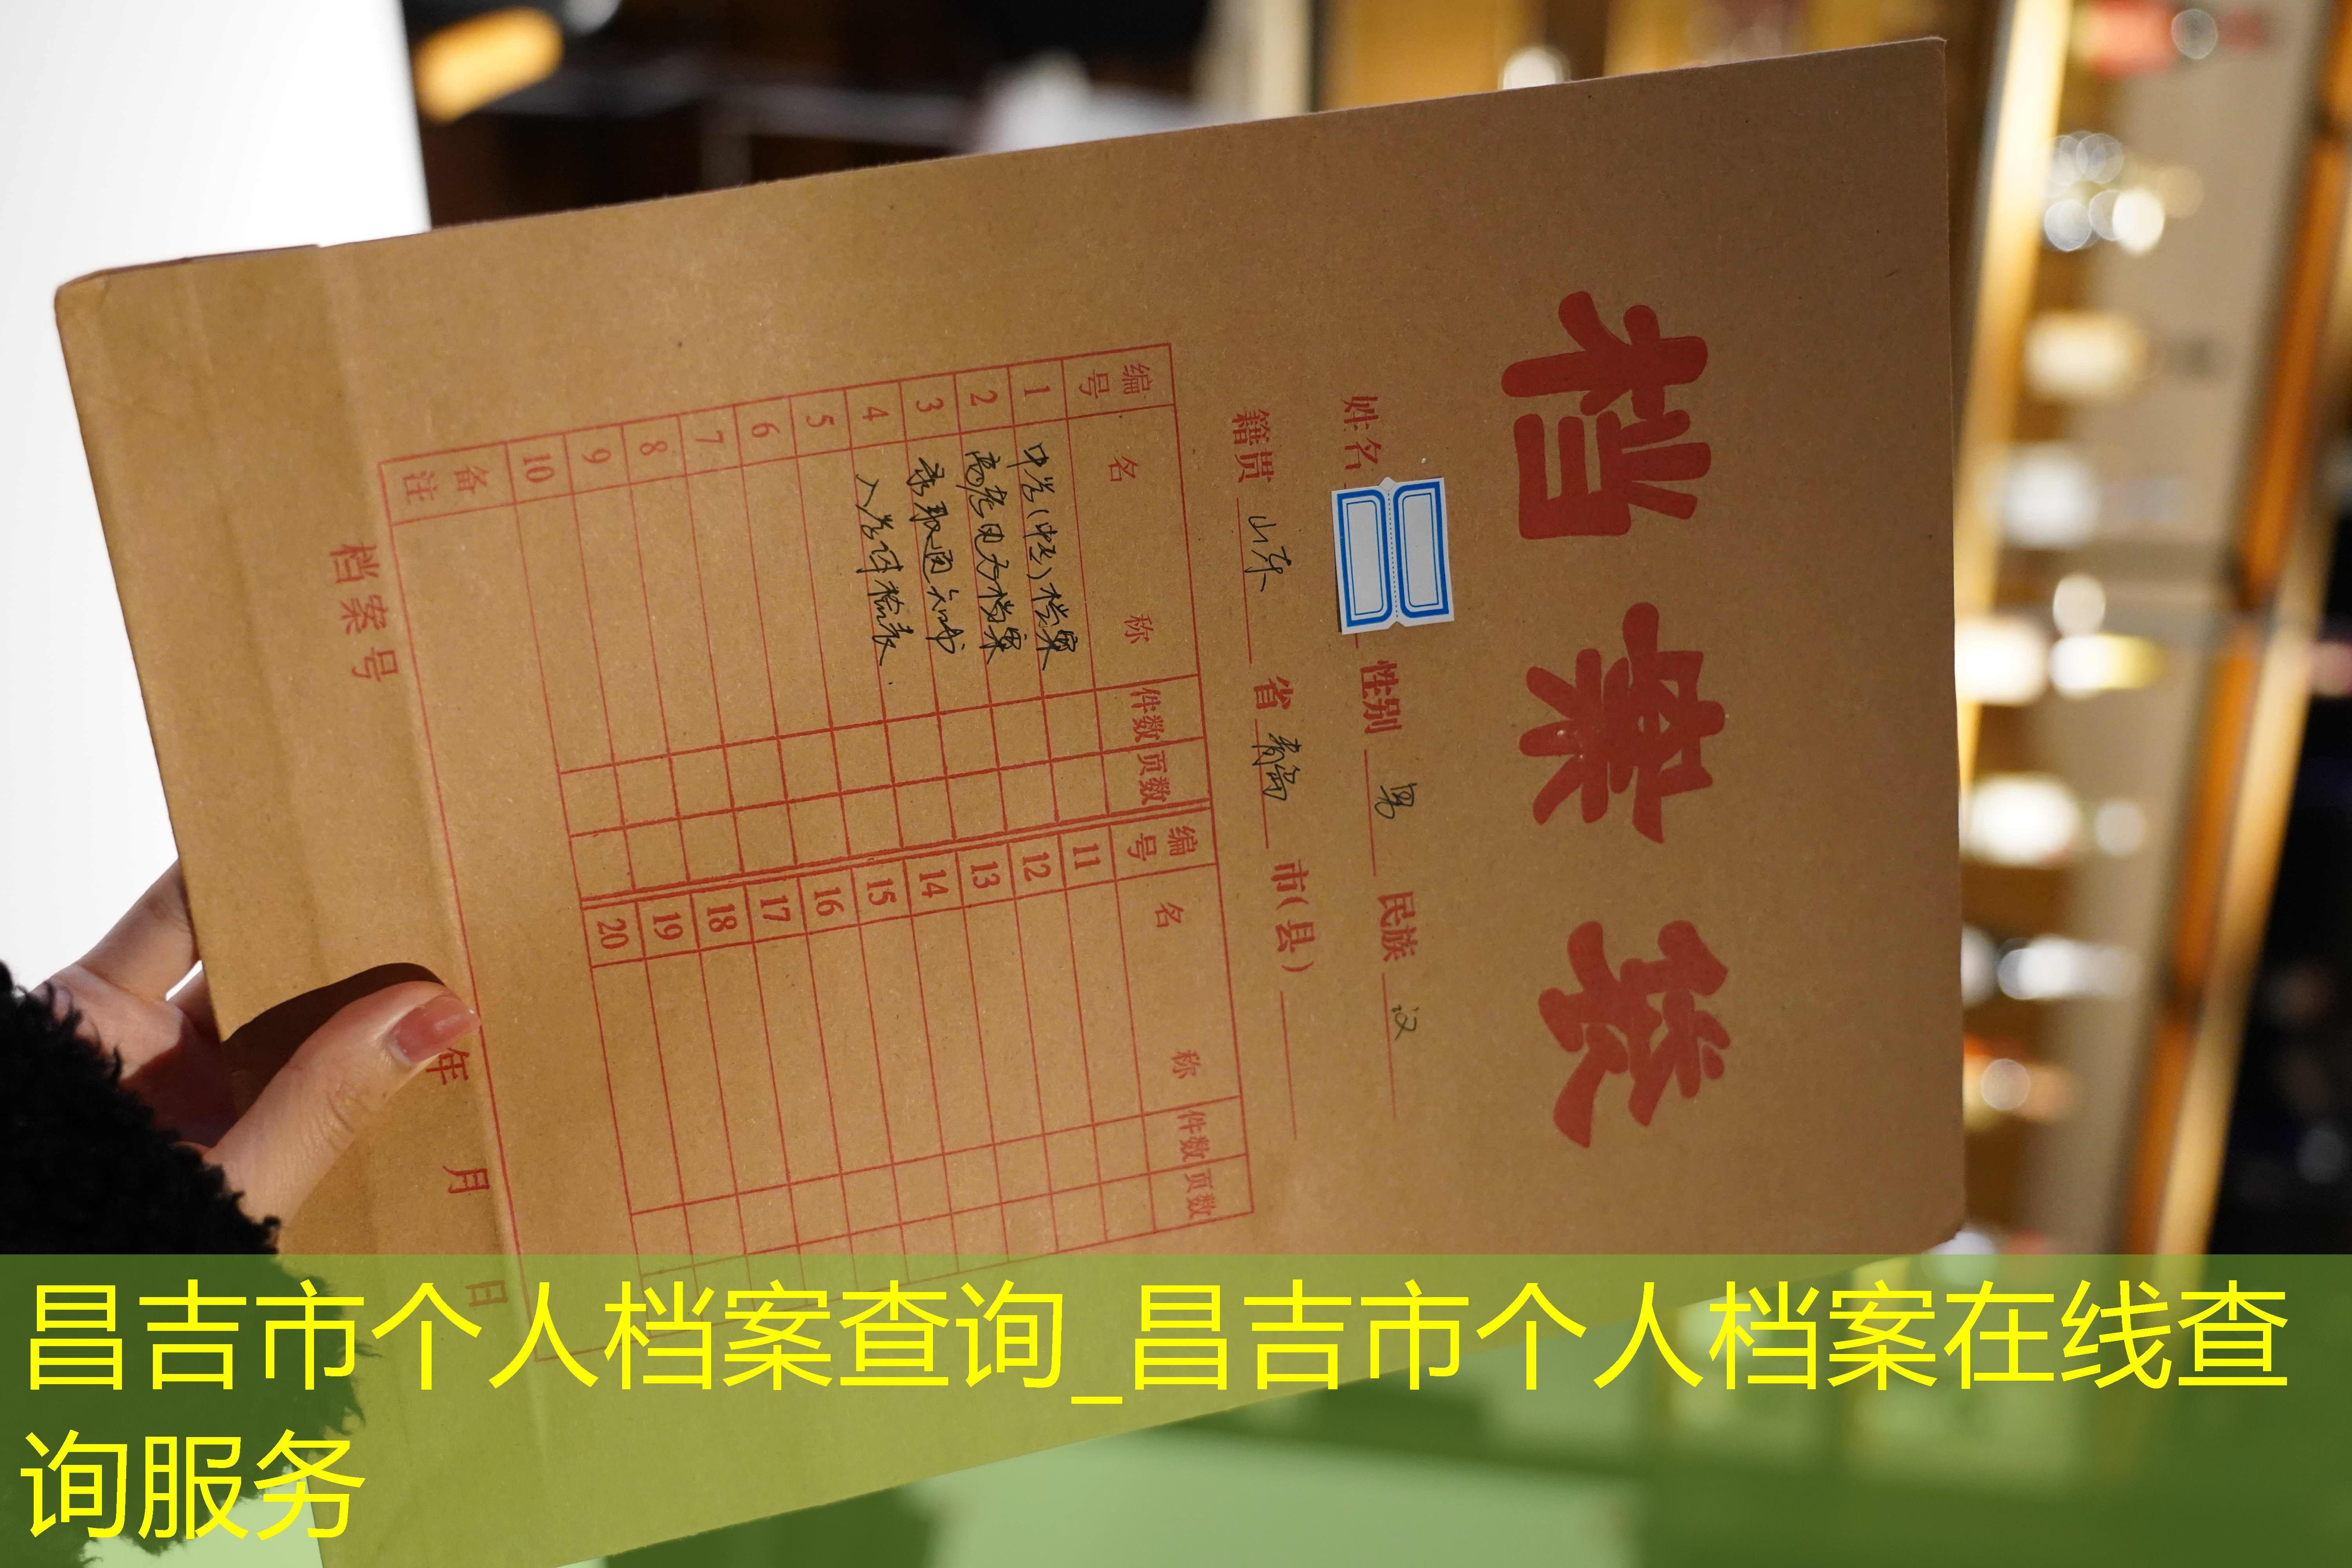 档案袋
姓名 性别 男 民族 汉
籍贯 山东 省 青岛 市(县)
编号 名称 件数 页数 编号 名称 件数 页数
1 中学(中专)档案 11
2 高考电子档案 12
3 录取通知书 13
4 入学体检表 14
5 15
6 16
7 17
8 18
9 19
10 20
备注
档案号 年 月 日
昌吉市个人档案查询_昌吉市个人档案在线查
询服务